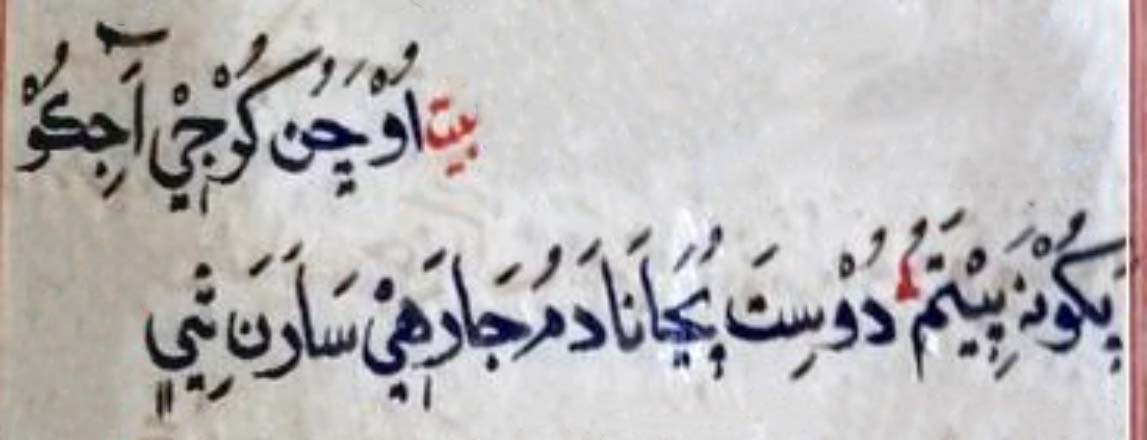 بيت اُوْچَنُ كُوْجِيْ آجِكُوْ
پِكُوْنَہِ پِيْتَمُ دُوْسِتَ پُڃَانَا دَمُ جَارَهِيْ سَارَنَ ٿِيِ